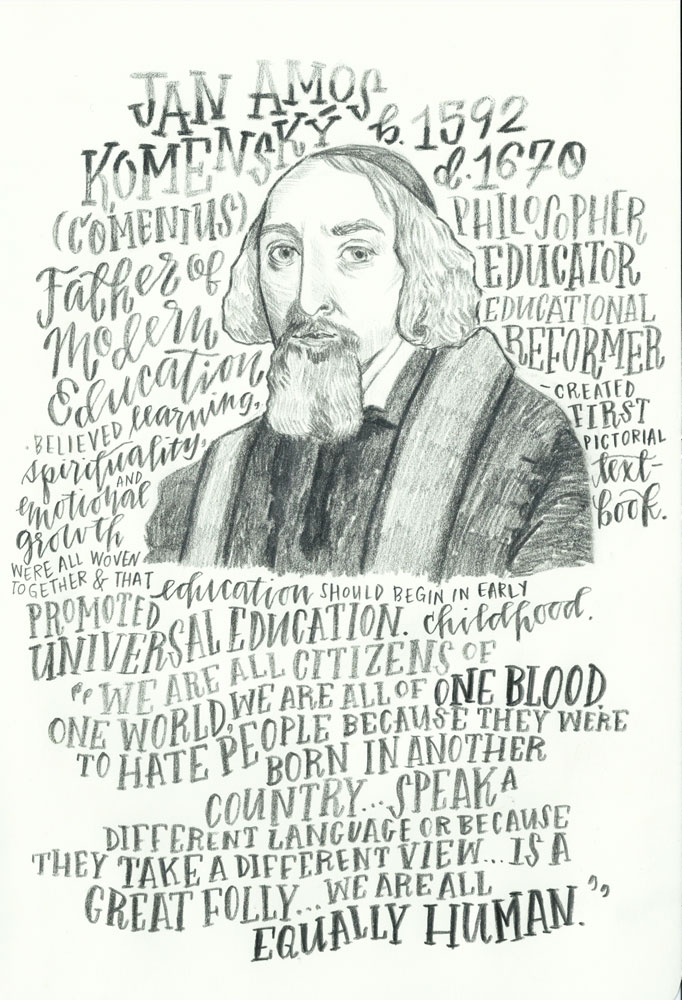 JAN AMOS
KOMENSKÝ
b. 1592
d. 1670
(COMENIUS)
Father of
Modern
Education
· BELIEVED learning,
spirituality,
AND
emotional
growth
WERE ALL WOVEN
TOGETHER & THAT education SHOULD BEGIN IN EARLY
childhood.
PHILOSOPHER
EDUCATOR
EDUCATIONAL
REFORMER
- CREATED
FIRST
PICTORIAL
text-
book.
PROMOTED
UNIVERSAL EDUCATION.
"WE ARE ALL CITIZENS OF
ONE WORLD, WE ARE ALL OF ONE BLOOD.
TO HATE PEOPLE BECAUSE THEY WERE
BORN IN ANOTHER
COUNTRY... SPEAK A
DIFFERENT LANGUAGE OR BECAUSE
THEY TAKE A DIFFERENT VIEW... IS A
GREAT FOLLY... WE ARE ALL
EQUALLY HUMAN."